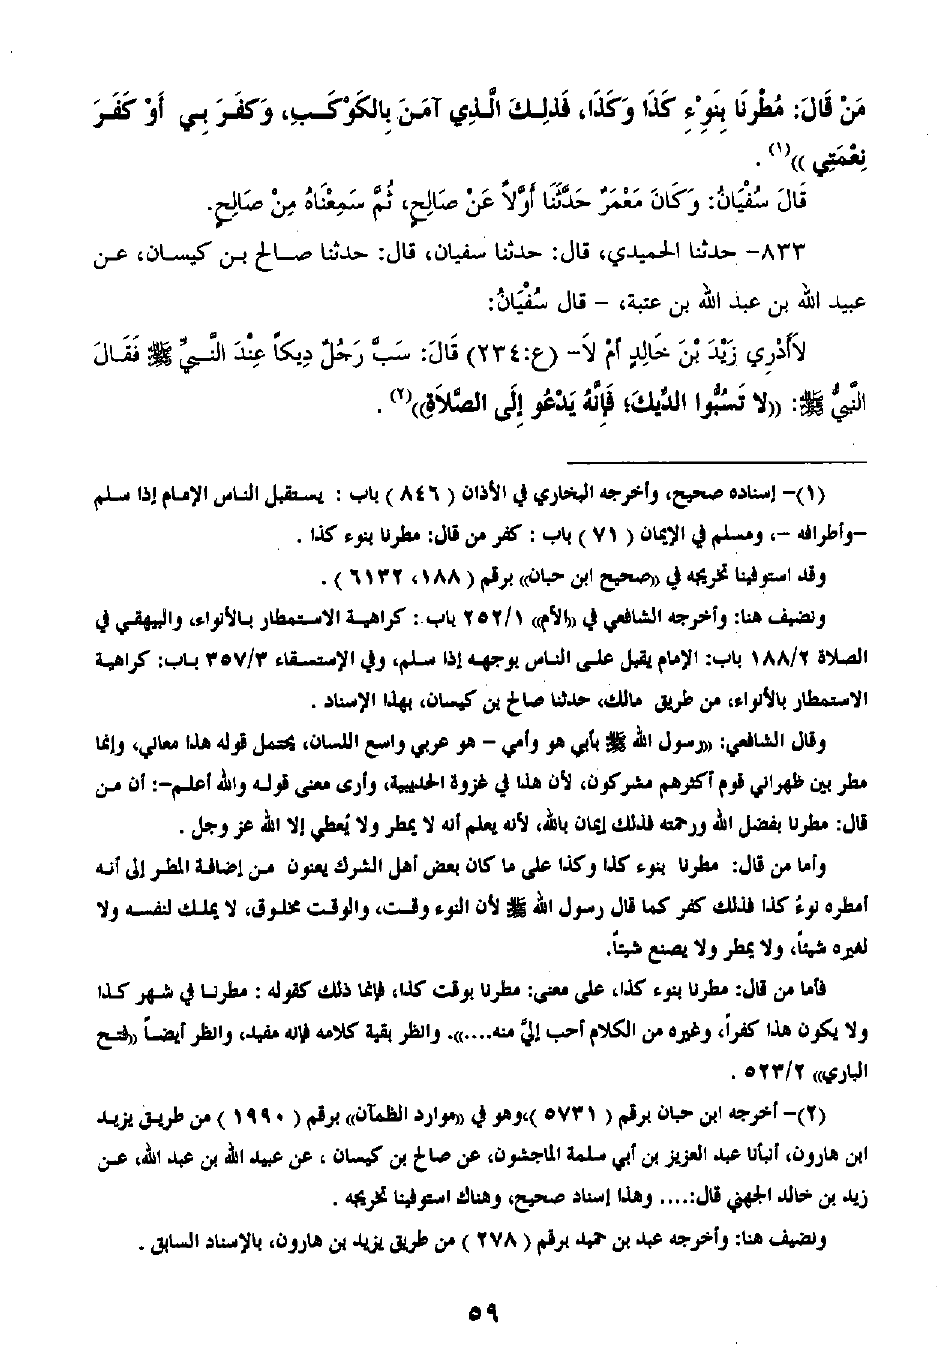 مَنْ قَالَ: مُطْرِنَا بِنَوْءِ كَذَا وَكَذَا، فَذلِكَ الَّذِي آمَنَ بِالكَوْكَبِ، وَكَفَرَ بِي أَوْ كَفَرَ
نِعْمَتِي))(١) .
قَالَ سُفْيَانُ: وَكَانَ مَعْمَرٌ حَدَّثَنَا أَوَّلاً عَنْ صَالِحٍ، ثُمَّ سَمِعْنَاهُ مِنْ صَالِحٍ.
٨٣٣- حدثنا الحميدي، قال: حدثنا سفيان، قال: حدثنا صالح بن كيسان، عن
عبيد الله بن عبد الله بن عتبة، - قال سُفْيَانُ:
لاَأَدْرِي زَيْدَ بْنَ خَالِدٍ أَمْ لاَ- (ع:٢٣٤) قَالَ: سَبَّ رَجُلٌ دِيكاً عِنْدَ النَّبِيِّ ﷺ فَقَالَ
النَّبِيُّ ﷺ: ((لا تَسُبُّوا الدِّيكَ؛ فَإِنَّهُ يَدْعُو إِلَى الصَّلاَةِ))(٢) .
(١)- إسناده صحيح، وأخرجه البخاري في الأذان ( ٨٤٦ ) باب : يستقبل الناس الإمام إذا سلم
-وأطرافه -، ومسلم في الإيمان ( ٧١ ) باب : كفر من قال: مطرنا بنوء كذا .
وقد استوفينا تخريجه في ((صحيح ابن حبان)) برقم ( ١٨٨، ٦١٣٢ ) .
ونضيف هنا: وأخرجه الشافعي في ((الأم)) ٢٥٢/١ باب : كراهية الاستمطار بالأنواء، والبيهقي في
الصلاة ١٨٨/٢ باب: الإمام يقبل على الناس بوجهه إذا سلم، وفي الإستسقاء ٣٥٧/٣ باب: كراهية
الاستمطار بالأنواء، من طريق مالك، حدثنا صالح بن كيسان، بهذا الإسناد .
وقال الشافعي: ((رسول الله ﷺ بأبي هو وأمي - هو عربي واسع اللسان، يحتمل قوله هذا معاني، وإنما
مطر بين ظهراني قوم أكثرهم مشركون، لأن هذا في غزوة الحديبية، وأرى معنى قوله والله أعلم-: أن من
قال: مطرنا بفضل الله ورحمته فذلك إيمان بالله، لأنه يعلم أنه لا يمطر ولا يُعطي إلا الله عز وجل .
وأما من قال: مطرنا بنوء كذا وكذا على ما كان بعض أهل الشرك يعنون من إضافة المطر إلى أنه
أمطره نوءُ كذا فذلك كفر كما قال رسول الله ﷺ لأن النوء وقت، والوقت مخلوق، لا يملك لنفسه ولا
لغيره شيئاً، ولا يمطر ولا يصنع شيئاً.
فأما من قال: مطرنا بنوء كذا، على معنى: مطرنا بوقت كذا، فإنما ذلك كقوله : مطرنا في شهر كذا
ولا يكون هذا كفراً، وغيره من الكلام أحب إليَّ منه....)). وانظر بقية كلامه فإنه مفيد، وانظر أيضاً ((فتح
الباري)) ٥٢٣/٢ .
(٢)- أخرجه ابن حبان برقم ( ٥٧٣١ )،وهو في ((موارد الظمآن)) برقم ( ١٩٩٠ ) من طريق يزيد
ابن هارون، أنبأنا عبد العزيز بن أبي سلمة الماجشون، عن صالح بن كيسان ، عن عبيد الله بن عبد الله، عن
زيد بن خالد الجهني قال:.... وهذا إسناد صحيح، وهناك استوفينا تخريجه .
ونضيف هنا: وأخرجه عبد بن حميد برقم ( ٢٧٨ ) من طريق يزيد بن هارون، بالإسناد السابق .
٥٩